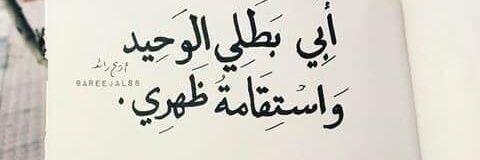 أبِي بَطَلِي الوَحِيد
وَاسْتِقَامةُ ظَهرِي.
@AREEJALSS